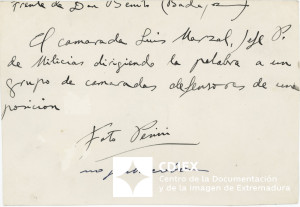 frente de Don Benito (Badajoz)
El camarada Luis Marzal, Jefe P.
de Milicias dirigiendo la palabra a un
grupo de camaradas defensores de una
posición
Foto
no
CDIEX
Centro de la Documentación
y de la Imagen de Extremadura